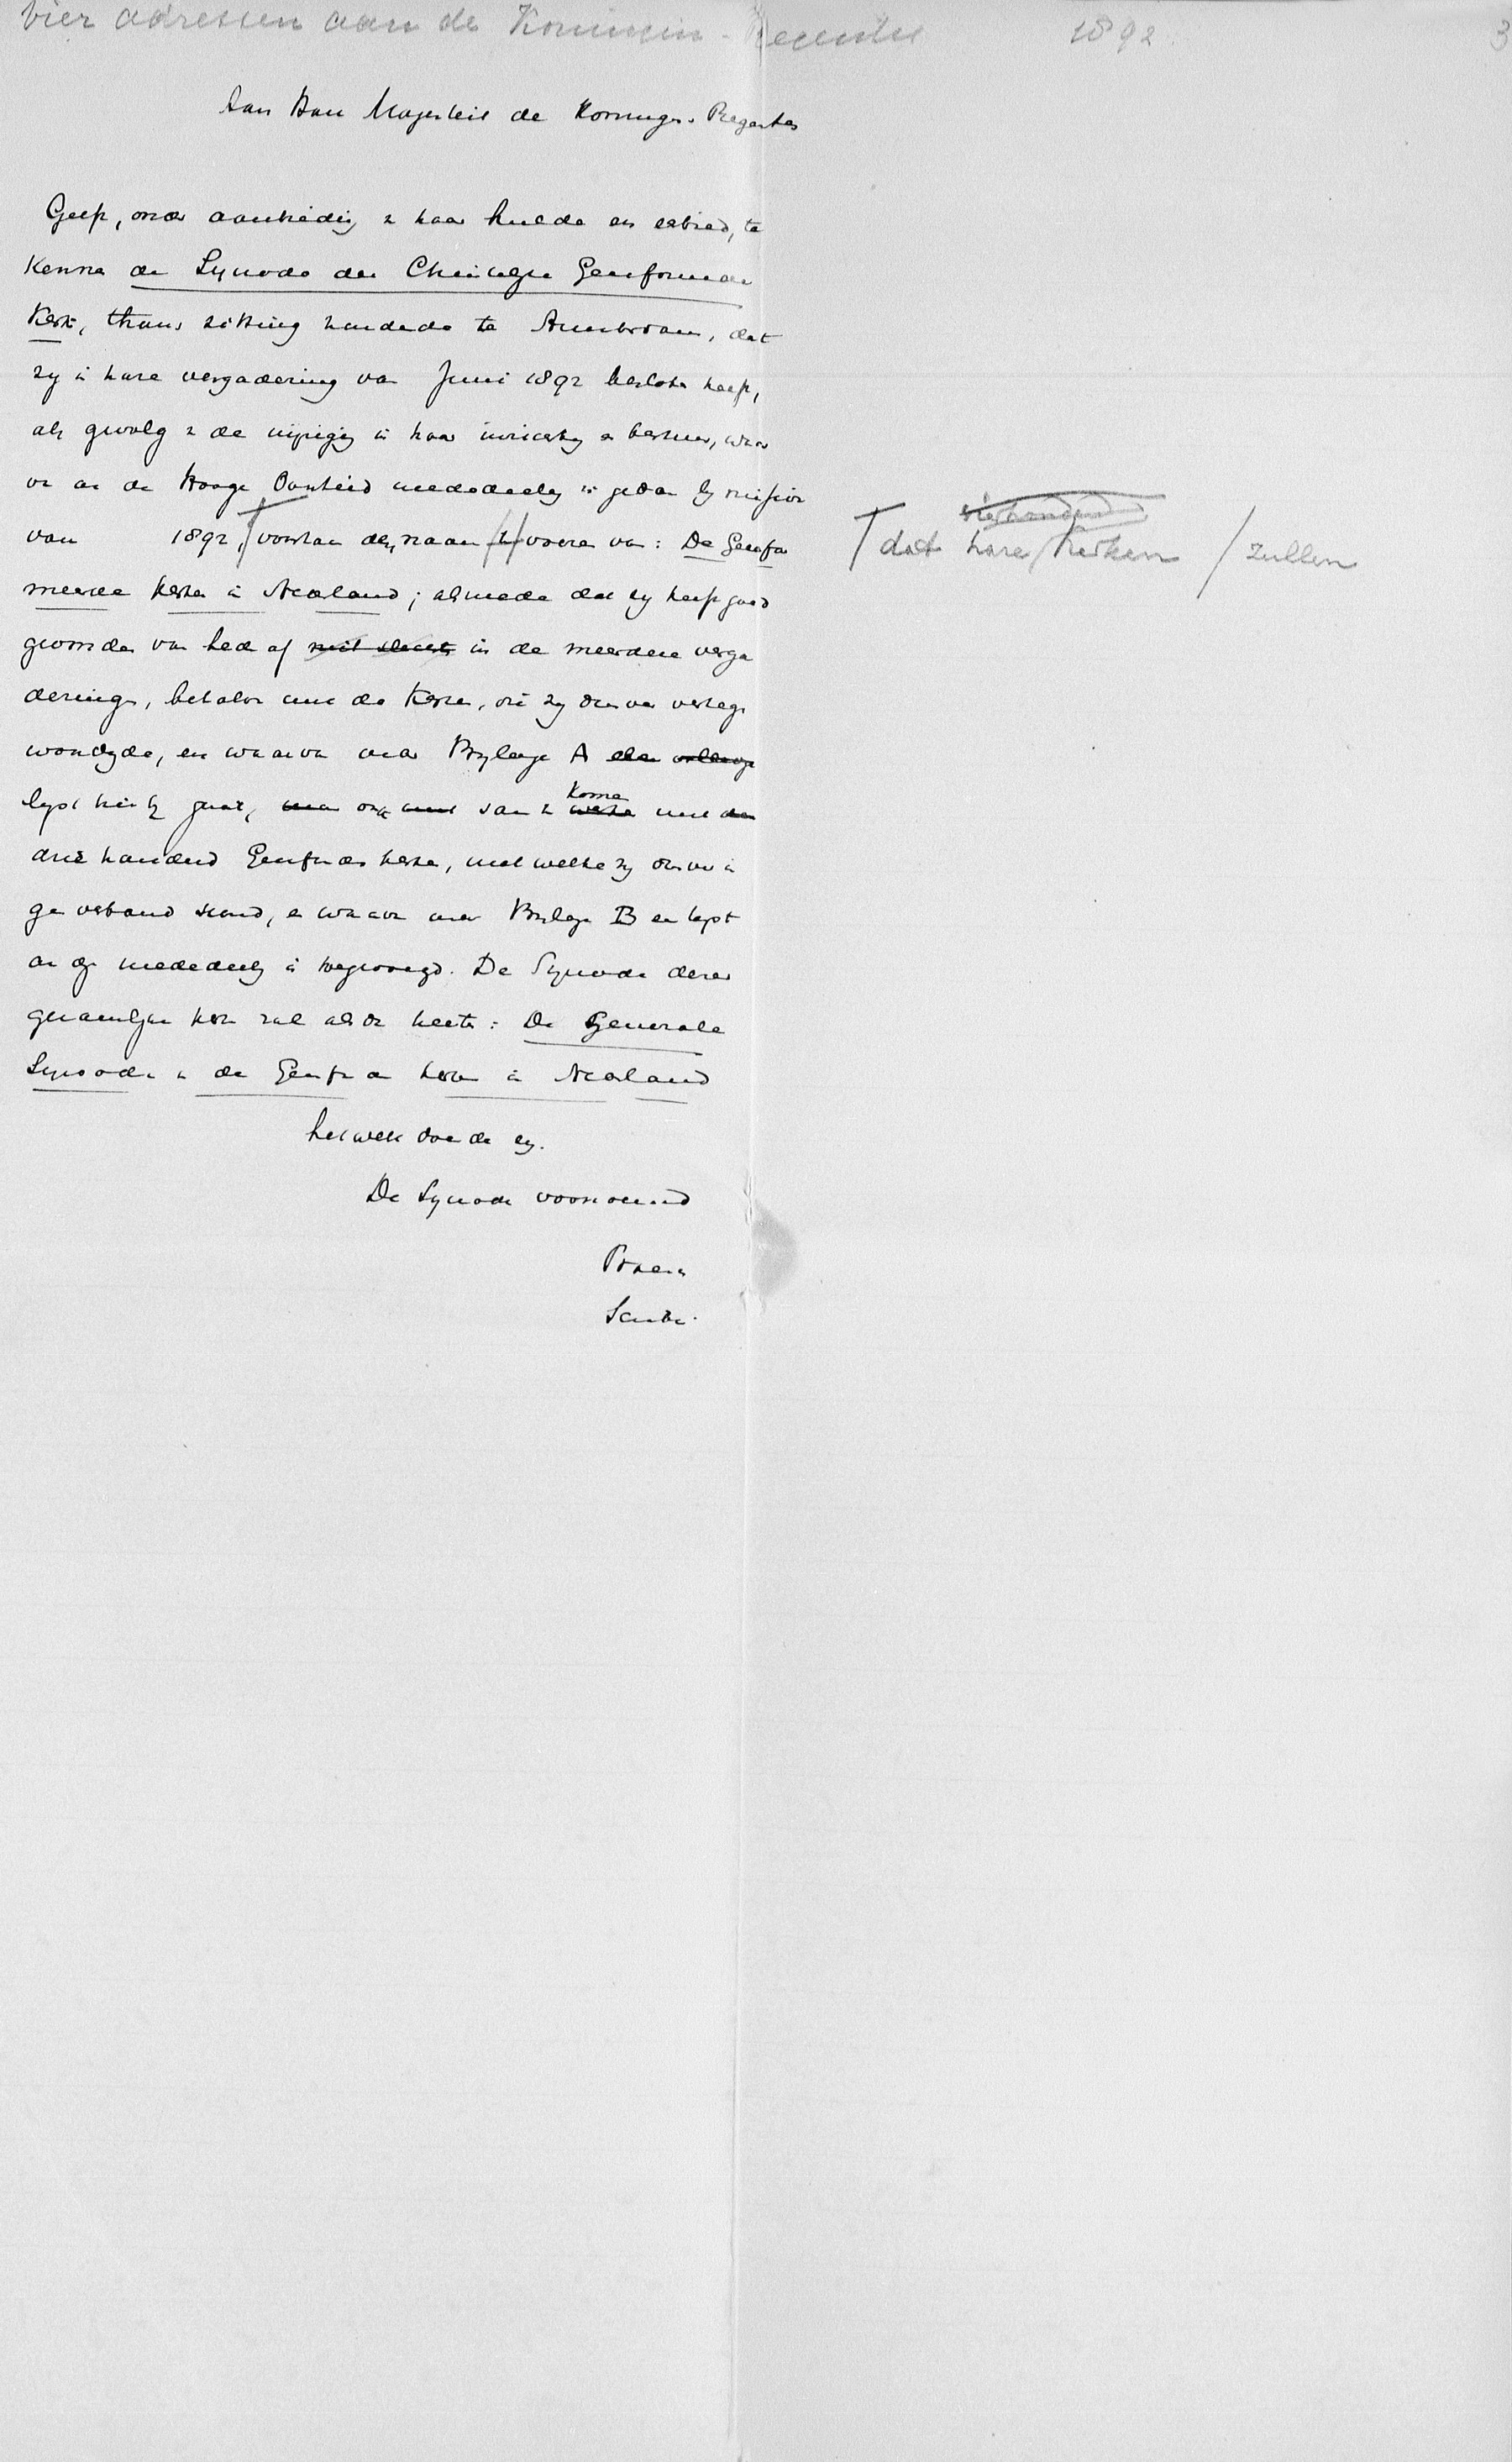 vier adressen aan de Koningin-Regentes 1892 3
Aan Hare Majesteit de Koningin-Regentes
Geeft, onder aanbieding v haar hulde en eerbied, te
kennen de Synode der Christelijke Gereformeerde
Kerk, thans zitting houdende te Amsterdam, dat
zy in hare vergadering van Juni 1892 besloten heeft,
als gevolg v de wijziging in haar inrichting en bestuur, waar
van aan de Hooge Overheid mededeeling is gedaan by missive
van 1892, voortaan den naam te voeren van: De Gerefor
meerde Kerken in Nederland; alsmede dat zy heeft goed
gevonden van heden af niet slechts in de meerdere verga
deringen, behalve met de Kerken, die zy dusver vertegen
woordigde, en waarvan onder Bylage A een
lyst hierby gaat, ook saam te komen met
driehonderd Gereformeerde kerken, met welke zy dusver in
geen verband stond, en waarvan onder Bylage B een lyst
aan deze mededeeling is toegevoegd. De Synode dezer
gezamenlijke kerken zal alsdan heeten: De Generale
Synode v de Gereformeerde kerken in Nederland
hetwelk doende enz.
De Synode voornoemd
Praeses
Scriba.
vierhonderd
dat hare kerken / zullen